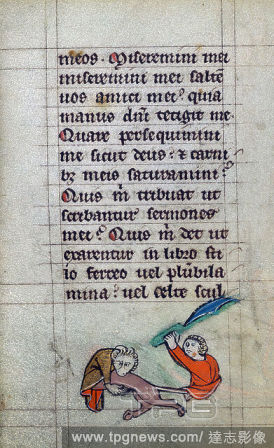 meos. Miseremini mei
miseremini mei saltē
uos amici mei? quia
manus dn̄i tetigit me
Quare persequimini
me sicut deus? ⁊ carni
bȝ meis saturamini?
Quis m̄ tribuat ut
scribantur sermones
mei? Quis m̄ det ut
exarentur in libro sti
lo ferreo uel plūbi la
mina? uel celte scul
www.tpgnews.com/ 達志影像